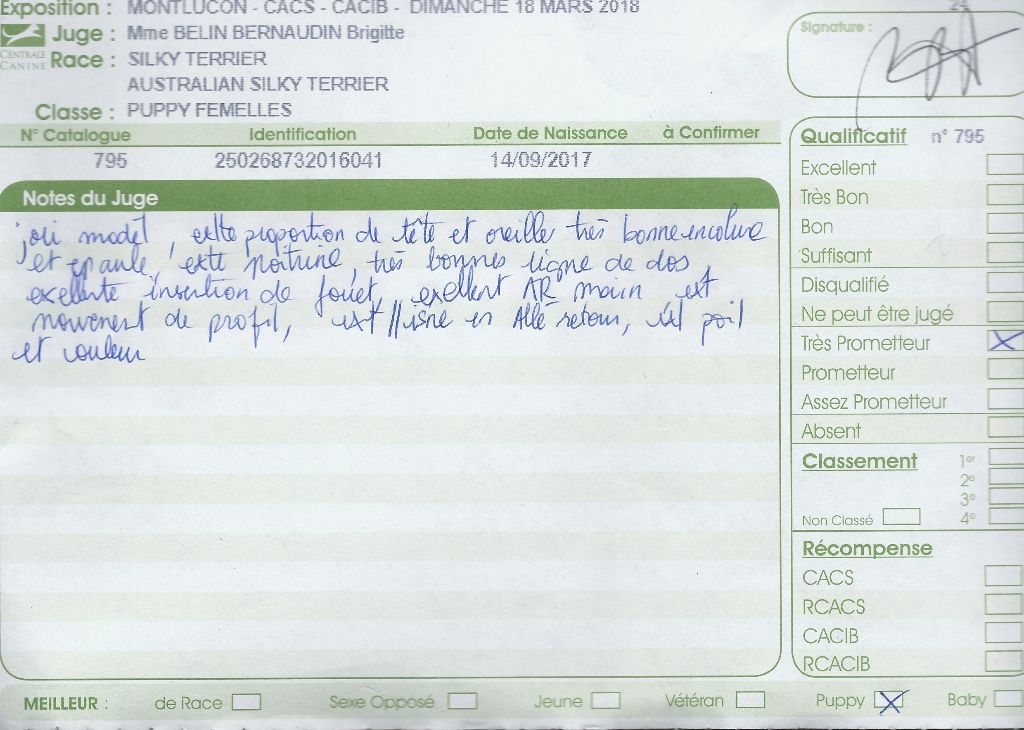 Exposition : MONTLUCON - CACS - CACIB - DIMANCHE 18 MARS 2018
24
Juge : Mme BELIN BERNAUDIN Brigitte
Signature :
CENTRALE
CANINE
Race : SILKY TERRIER
AUSTRALIAN SILKY TERRIER
Classe : PUPPY FEMELLES
N° Catalogue Identification Date de Naissance à Confirmer
795 250268732016041 14/09/2017
Notes du Juge
joli model, proportion de tête et oreille très bonne encolure
et épaule, poitrine, très bonnes ligne de dos,
exellente insertion de fouet, exellent AR main
mouvement de profil, en Allé retour, poil
et couleur
Qualificatif n° 795
Excellent
Très Bon
Bon
Suffisant
Disqualifié
Ne peut être jugé
Très Prometteur X
Prometteur
Assez Prometteur
Absent
Classement 1er
2e
3e
Non Classé 4e
Récompense
CACS
RCACS
CACIB
RCACIB
MEILLEUR : de Race Sexe Opposé Jeune Vétéran Puppy X Baby